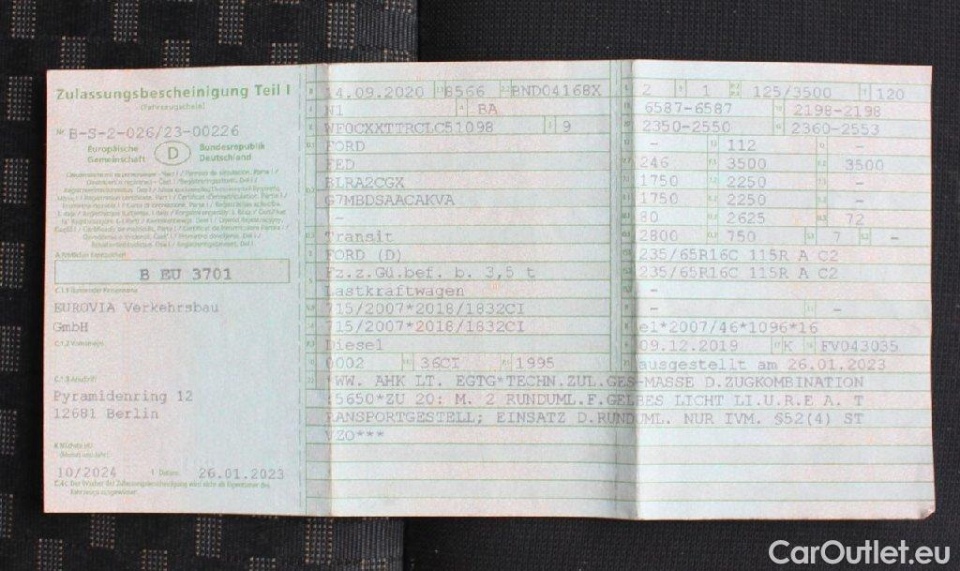 Zulassungsbescheinigung Teil I
(Fahrzeugschein)
Nr. B-S-2-026/23-00226
Europäische Gemeinschaft
D
Bundesrepublik Deutschland
B EU 3701
EUROVIA Verkehrsbau
GmbH
Pyramidenring 12
12681 Berlin
10/2024
26.01.2023
14.09.2020 8566 BND04168X
N1 BA
WF0CXXTTRCLC51098 9
FORD
FED
BLRA2CGX
G7MBDSAACAKVA
-
Transit
FORD (D)
Fz.z.Gü.bef. b. 3,5 t
Lastkraftwagen
715/2007*2018/1832CI
715/2007*2018/1832CI
Diesel
0002 36CI 1995
2 1 125/3500 120
6587-6587 2198-2198
2350-2550 2360-2553
- 112 -
246 3500 3500
1750 2250 -
1750 2250 -
80 2625 72
2800 750 7 -
235/65R16C 115R A C2
235/65R16C 115R A C2
-
- -
e1*2007/46*1096*16
09.12.2019 K FV043035
ausgestellt am 26.01.2023
*WW. AHK LT. EGTG*TECHN.ZUL.GES-MASSE D.ZUGKOMBINATION
:5650*ZU 20: M. 2 RUNDUML.F.GELBES LICHT LI.U.RE A. T
RANSPORTGESTELL; EINSATZ D.RUNDUML. NUR IVM. §52(4) ST
VZO***
CarOutlet.eu